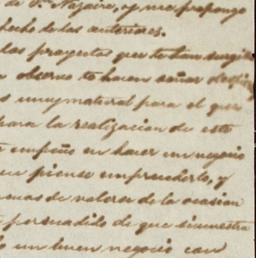 de Sn Nazaire, y me propongo
hecho de las anteriores.
los proyectos que te han surgido
observo te hacen soñar
muy natural para el que
la realización de este
empeño en hacer un negocio
piense emprenderlo, y
de valerse de la ocasion
persuadido de que si nuestra
un buen negocio con